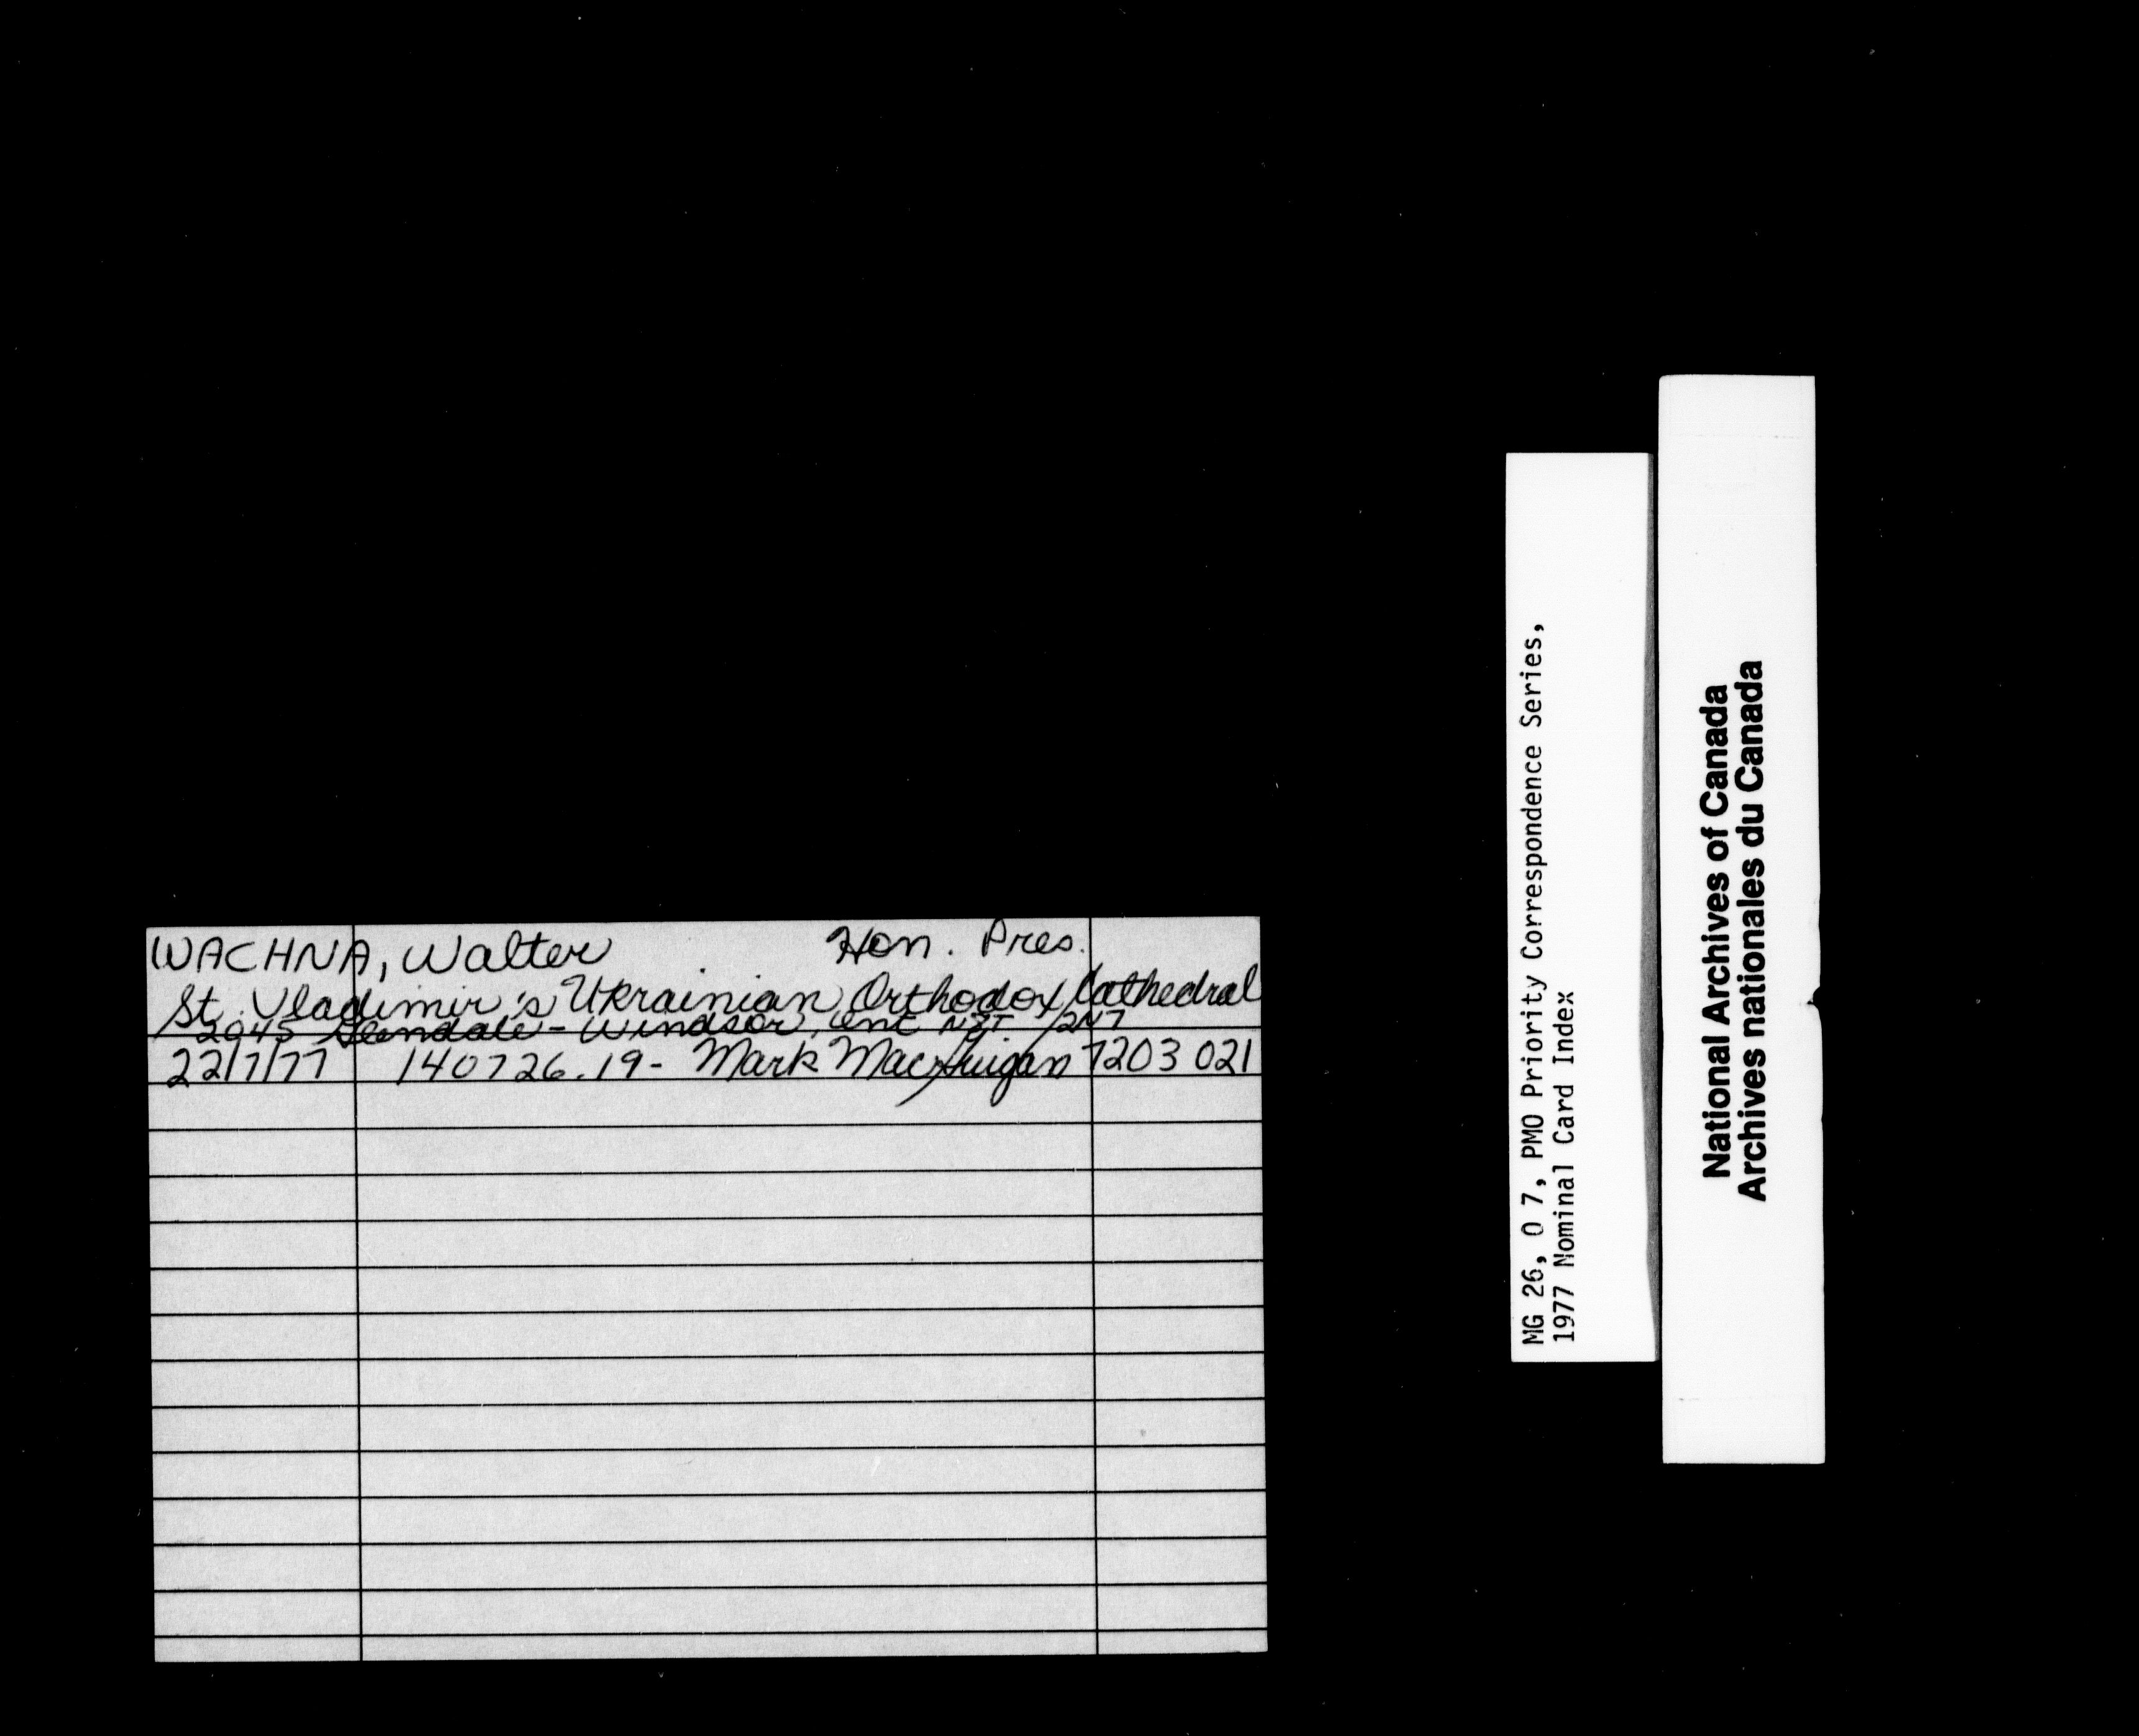 WACHNA, Walter Hon. Pres.
St. Vladimir's Ukrainian Orthodox Cathedral
2045 - Windsor, Ont
22/7/77 140726.19- Mark MacGuigan 7203 021
MG 26, O 7, PMO Priority Correspondence Series,
1977 Nominal Card Index
National Archives of Canada
Archives nationales du Canada